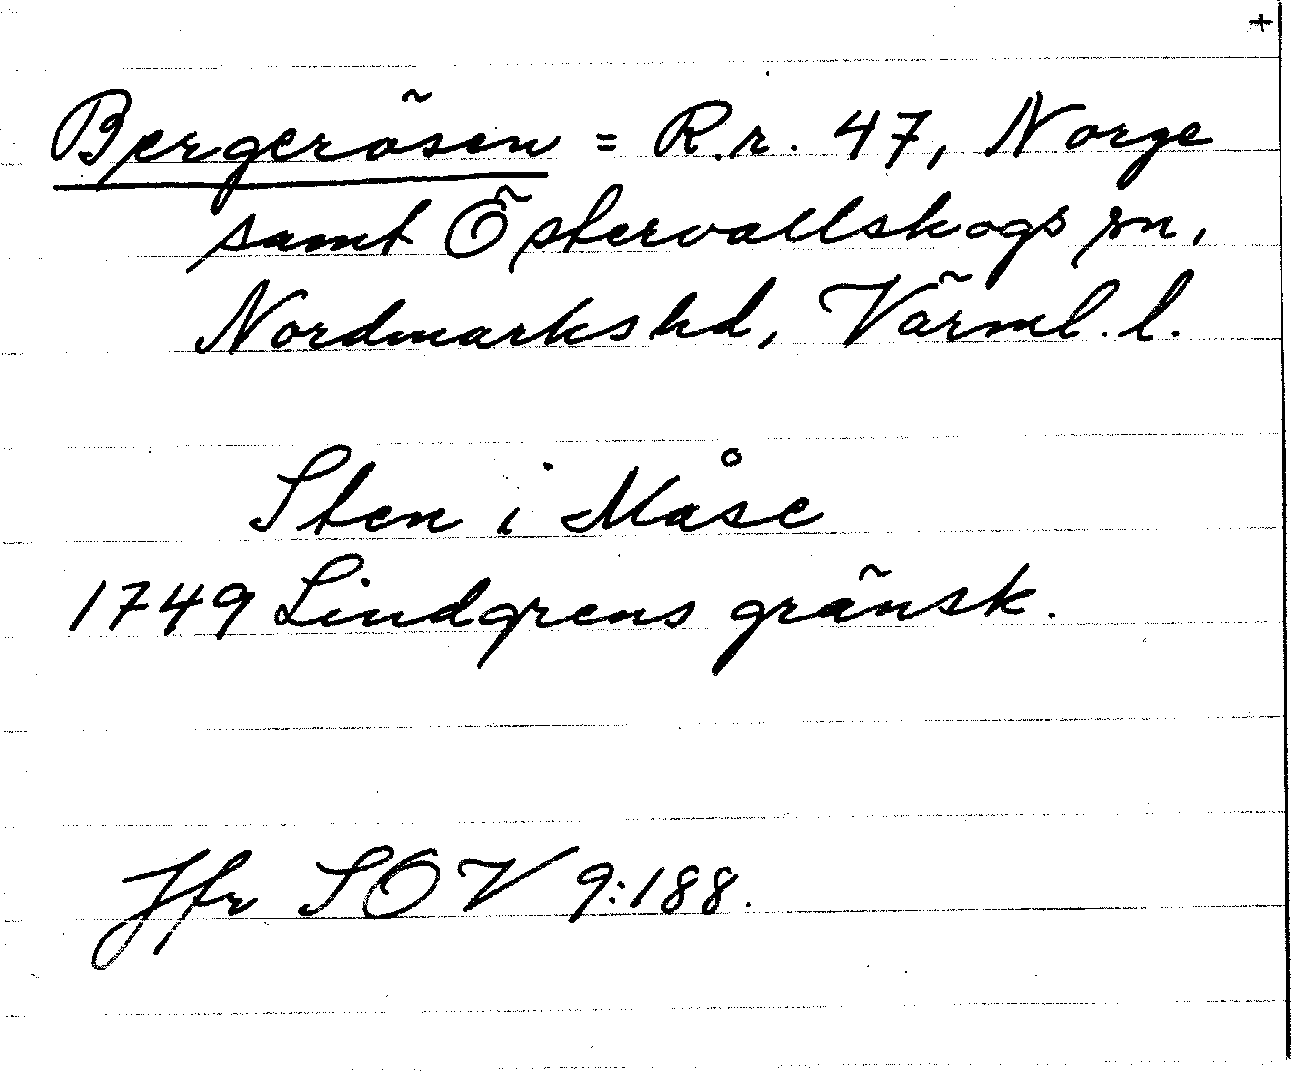 +
Bergerösen = R.r. 47, Norge
samt Östervallskogs sn,
Nordmarks hd, Värml. l.
Sten i Måse
1749 Lindgrens gränsk.
Jfr SOV 9:188.